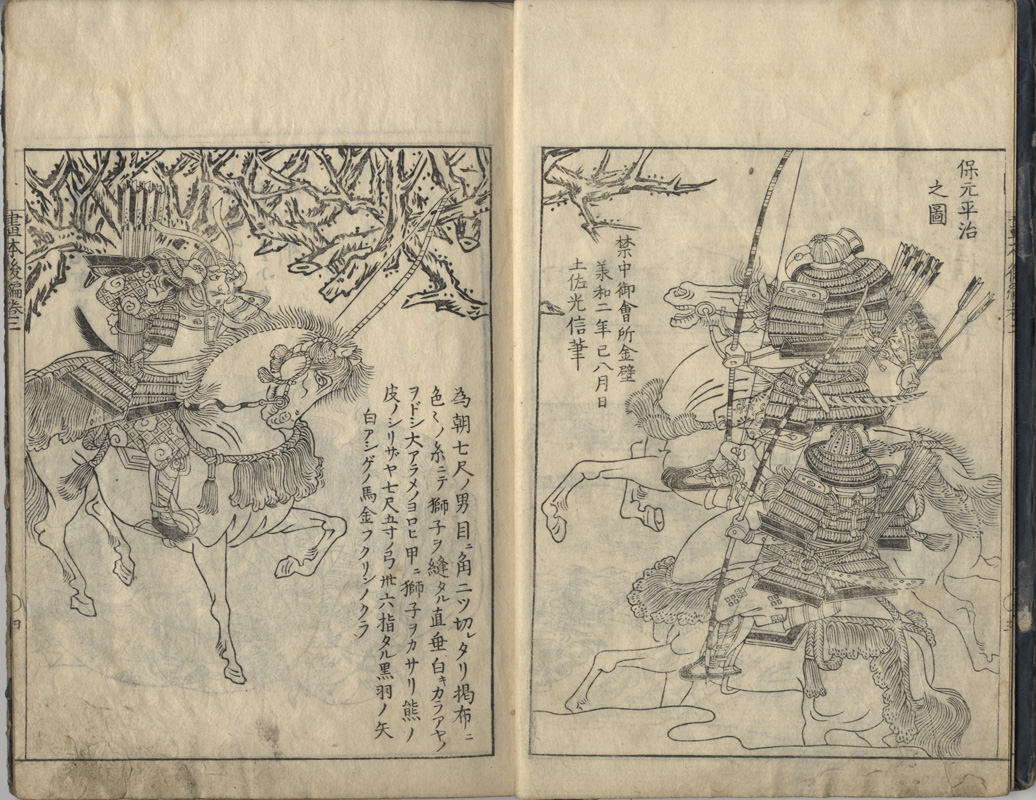 保元平治
之圖
禁中御會所金壁
義和二年己八月日
土佐光信筆
為朝七尺ノ男目ニ角二ツ切レタリ掲布ニ
色〻ノ糸ニテ獅子ヲ縫タル直垂白キカラアヤノ
ヲドシ大アラメノヨロヒ甲ニ獅子ヲカサリ熊ノ
皮ノシリザヤ七尺五寸ノ弓卅六指タル黒羽ノ矢
白アシゲノ馬金フクリンノクラ
畫本後編巻二
四